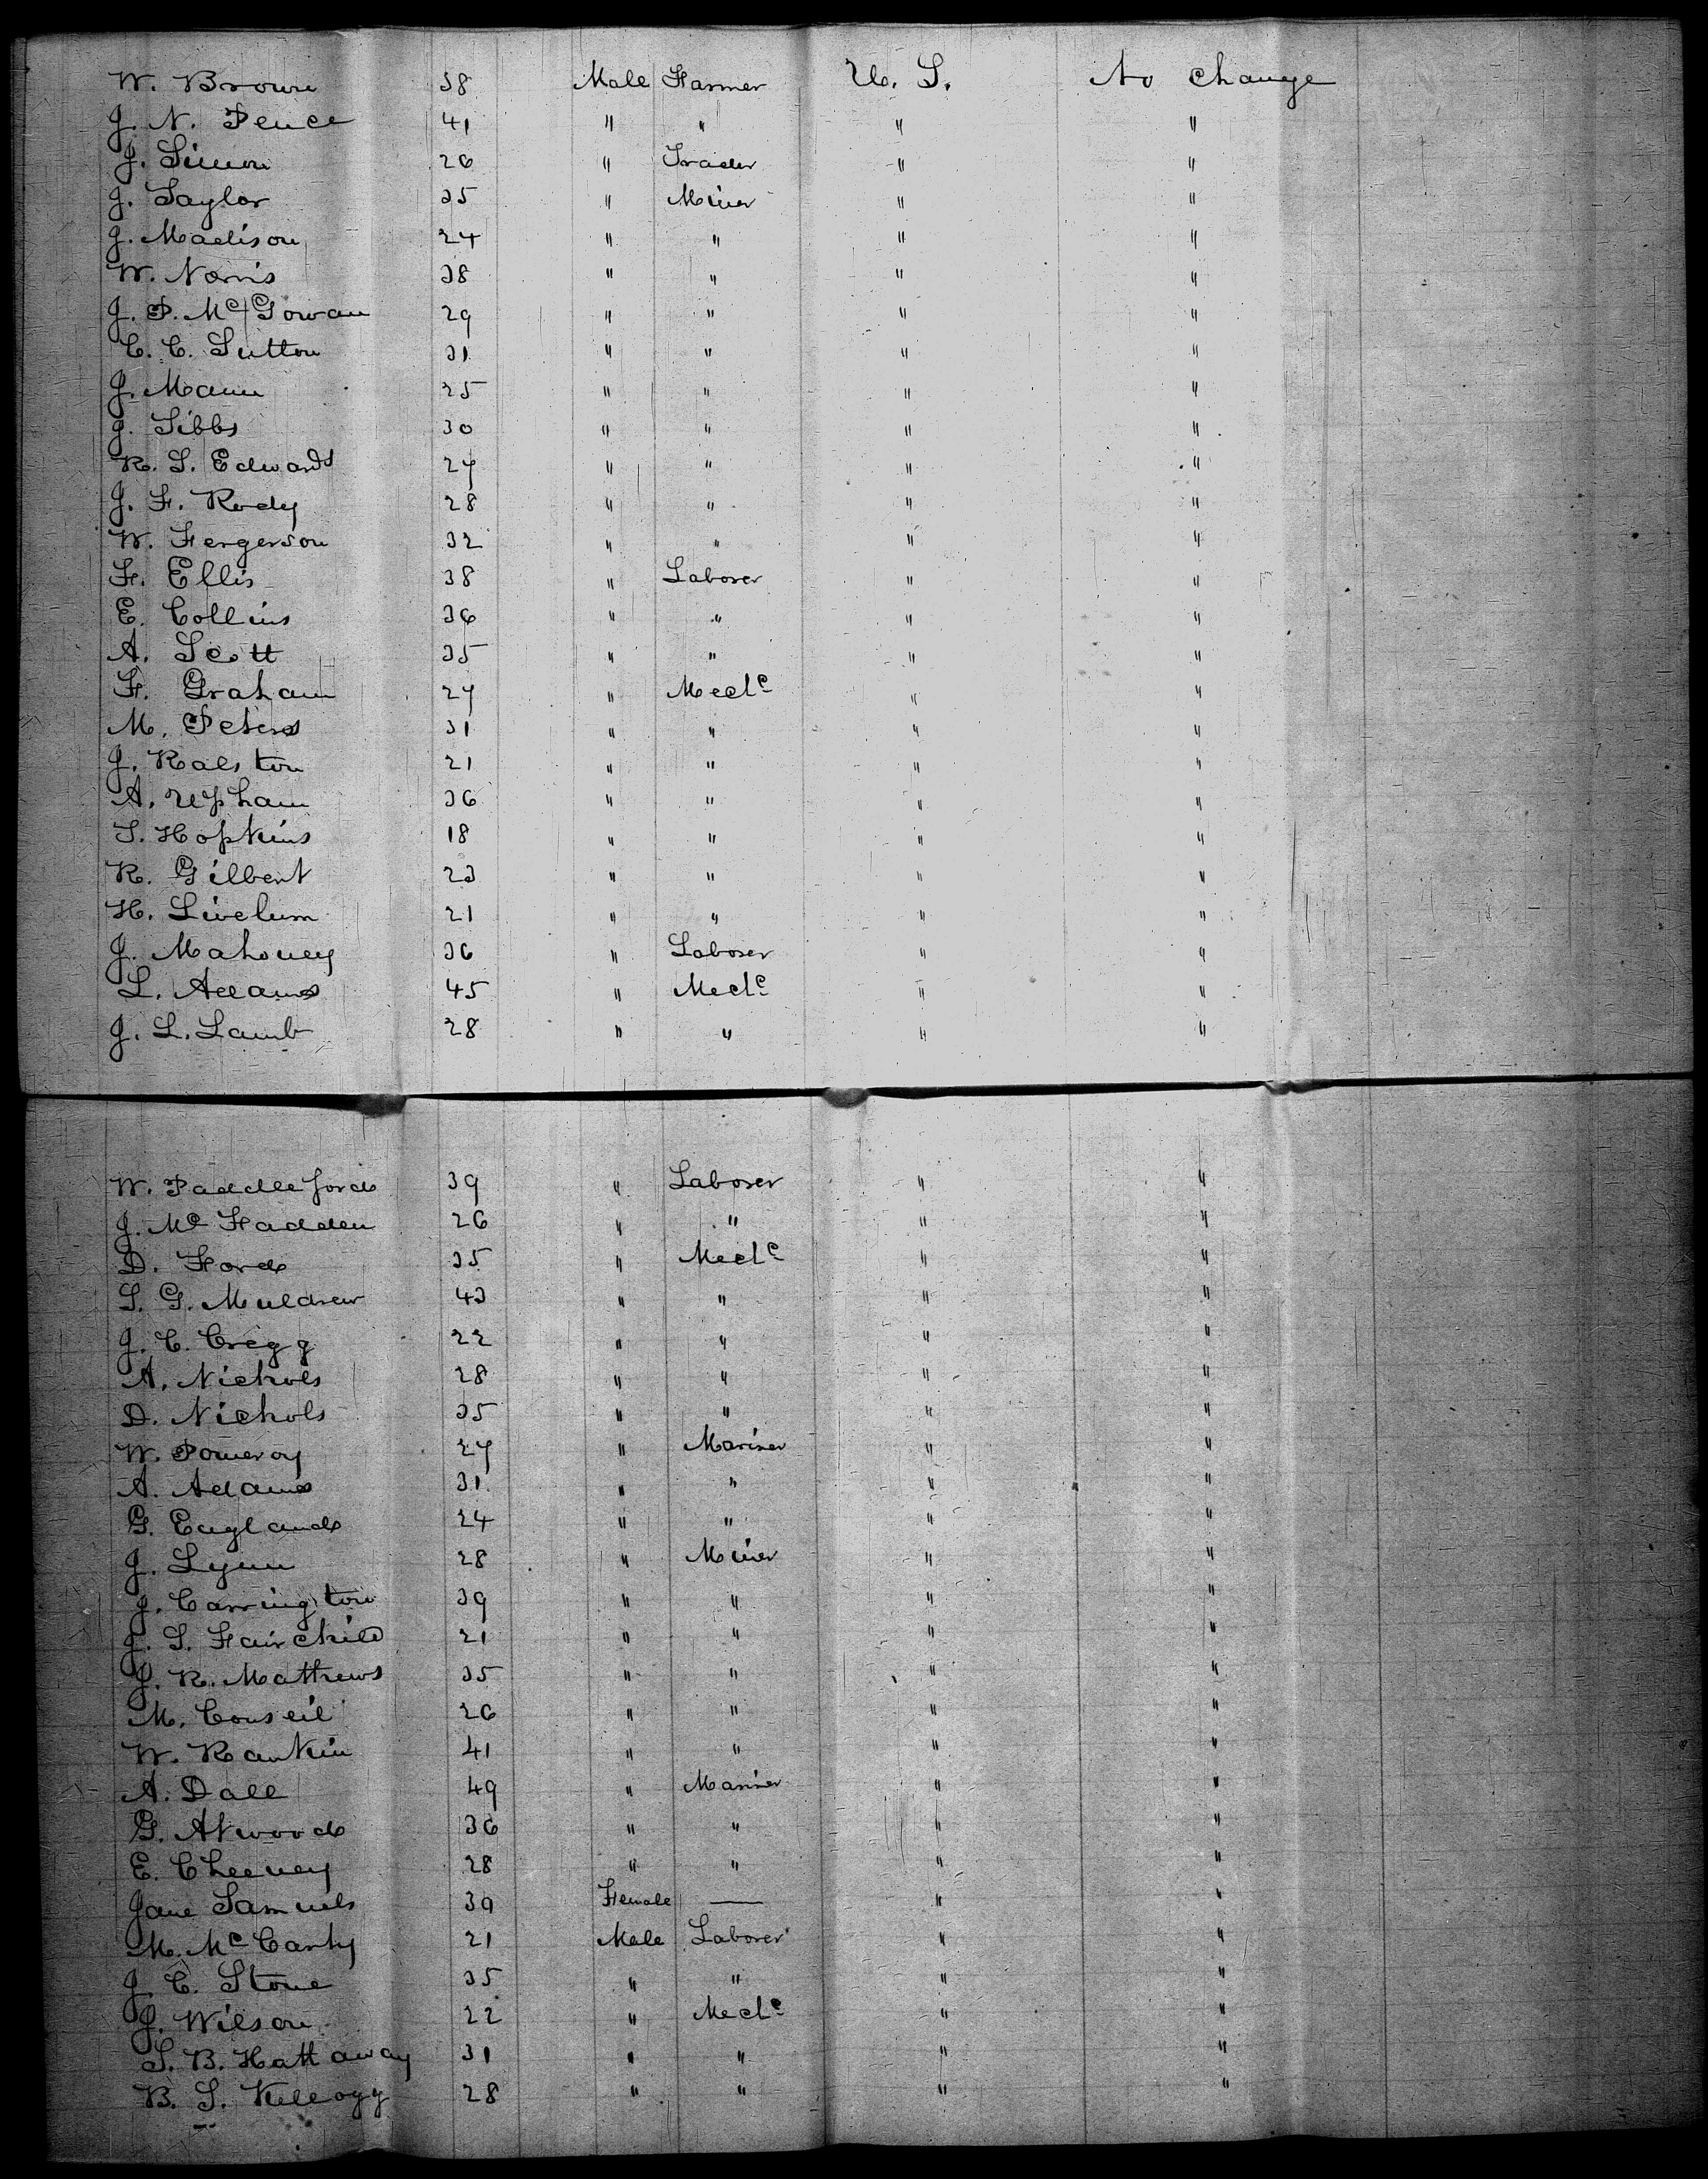 W. Brown 38 Male Farmer U. S. No change
J. N. Pence 41 " " " "
J. Simon 26 " Trader " "
J. Taylor 35 " Miner " "
J. Madison 24 " " " "
W. Norris 38 " " " "
J. P. McGowan 29 " " " "
C. C. Sutton 31 " " " "
J. Mann 25 " " " "
J. Tibbs 30 " " " "
R. S. Edwards 27 " " " "
J. F. Rody 28 " " " "
W. Fergerson 32 " " " "
F. Ellis 38 " Laborer " "
E. Collins 36 " " " "
A. Scott 35 " " " "
F. Graham 27 " Mechc " "
M. Peters 31 " " " "
J. Ralston 21 " " " "
A. Upham 36 " " " "
S. Hopkins 18 " " " "
R. Gilbert 23 " " " "
H. 21 " " " "
J. Mahoney 36 " Laborer " "
L. Adams 45 " Mechc " "
J. L. Lamb 28 " " " "
W. Paddleford 39 " Laborer " "
J. McFadden 26 " " " "
D. Ford 35 " Mechc " "
S. G. Muldrew 43 " " " "
J. C. Cregg 22 " " " "
A. Nichols 28 " " " "
D. Nichols 35 " " " "
W. Pomeroy 27 " Mariner " "
A. Adams 31 " " " "
G. England 24 " " " "
J. Lynn 28 " Miner " "
J. Carrington 39 " " " "
J. S. Fairchild 21 " " " "
J. R. Matthews 35 " " " "
M. Conseil 26 " " " "
W. Rankin 41 " " " "
A. Dall 49 " Mariner " "
G. Atwood 36 " " " "
E. Cheeney 28 " " " "
Jane Samuels 39 Female — " "
M. McCarty 21 Male Laborer " "
J. C. Stone 35 " " " "
J. Wilson 22 " Mechc " "
S. B. Hattaway 31 " " " "
B. S. Kellogg 28 " " " "